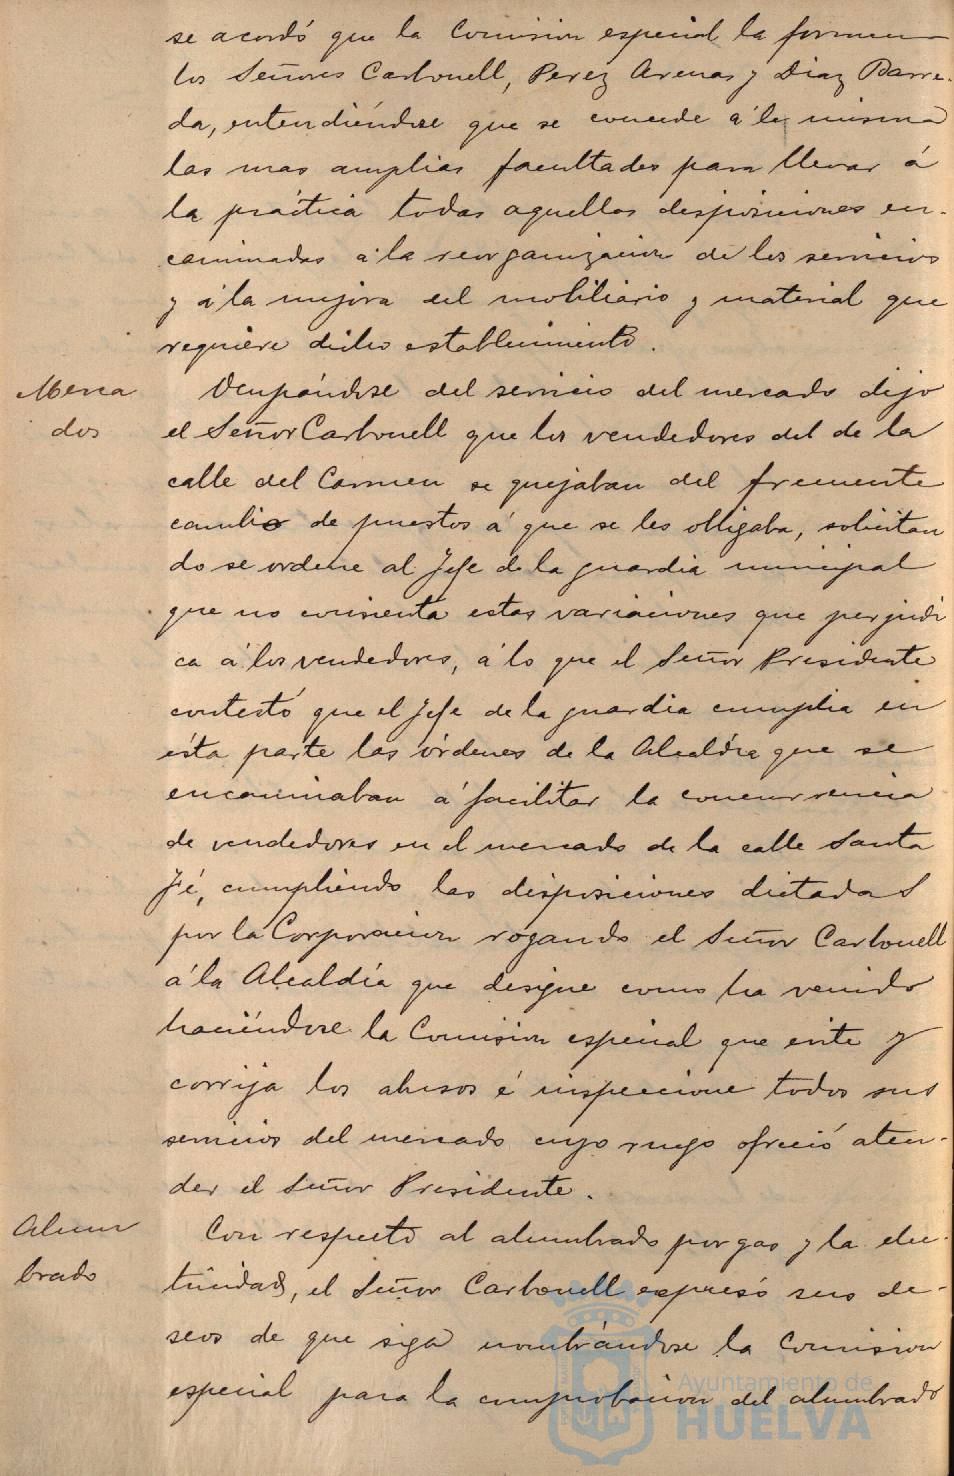 se acordó que la Comision especial la formen
los Señores Carbonell, Perez Arenas y Diaz Barre-
da, entendiéndose que se concede á la misma
las mas amplias facultades para llevar á
la práctica todas aquellas disposiciones en-
caminadas á la reorganizacion de los servicios
y á la mejora del mobiliario y material que
requiere dicho establecimiento.
Merca
dos
Ocupándose del servicio del mercado dijo
el Señor Carbonell que los vendedores del de la
calle del Carmen se quejaban del frecuente
cambio de puestos á que se les obligaba, solicitan
do se ordene al Jefe de la guardia municipal
que no consienta estas variaciones que perjudi
ca á los vendedores, á lo que el Señor Presidente
contestó que el Jefe de la guardia cumplia en
ésta parte las órdenes de la Alcaldía que se
encaminaban á facilitar la concurrencia
de vendedores en el mercado de la calle Santa
Fé, cumpliendo las disposiciones dictadas
por la Corporacion rogando el Señor Carbonell
á la Alcaldía que designe como ha venido
haciéndose la Comision especial que evite y
corrija los abusos é inspeccione todos sus
servicios del mercado cuyo ruego ofreció aten-
der el Señor Presidente.
Alum
brado
Con respecto al alumbrado por gas y la elec-
tricidad, el Señor Carbonell expresó sus de-
seos de que siga nombrándose la Comision
especial para la comprobacion del alumbrado
Ayuntamiento de
HUELVA